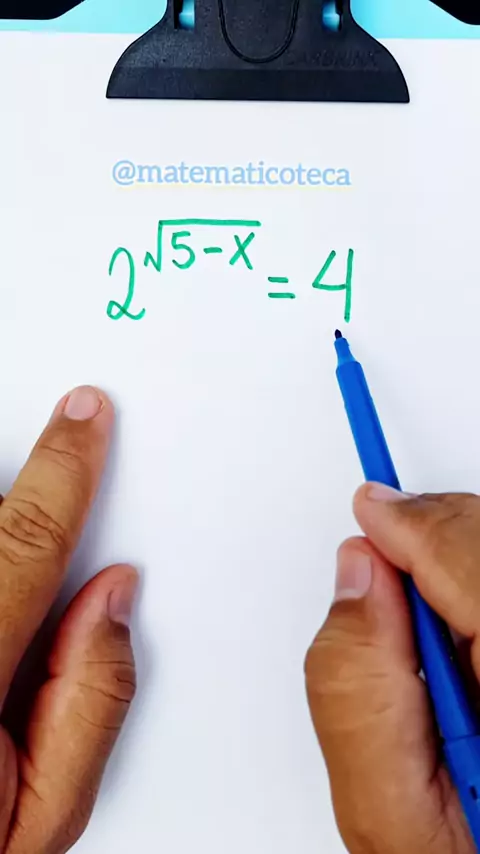 @matematicoteca
2^{\sqrt{5-x}} = 4